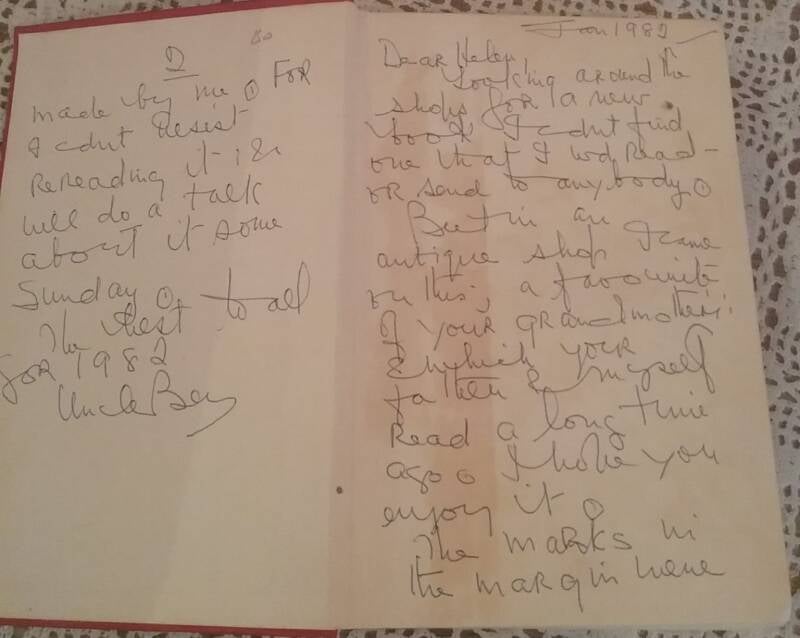 Jan 1982
Dear Helen,
Looking around the
shops for a new
book, I cdnt find
one that I wd Read -
or send to anybody.
But in an
antique shop I came
on this, a favourite
of your grandmothers
& which your
father & myself
Read a long time
ago. I hope you
enjoy it.
The marks in
the margin were
2
made by me. For
I cdnt Resist
Rereading it &
will do a talk
about it some
Sunday. to all
The best
for 1982
Uncle Ben